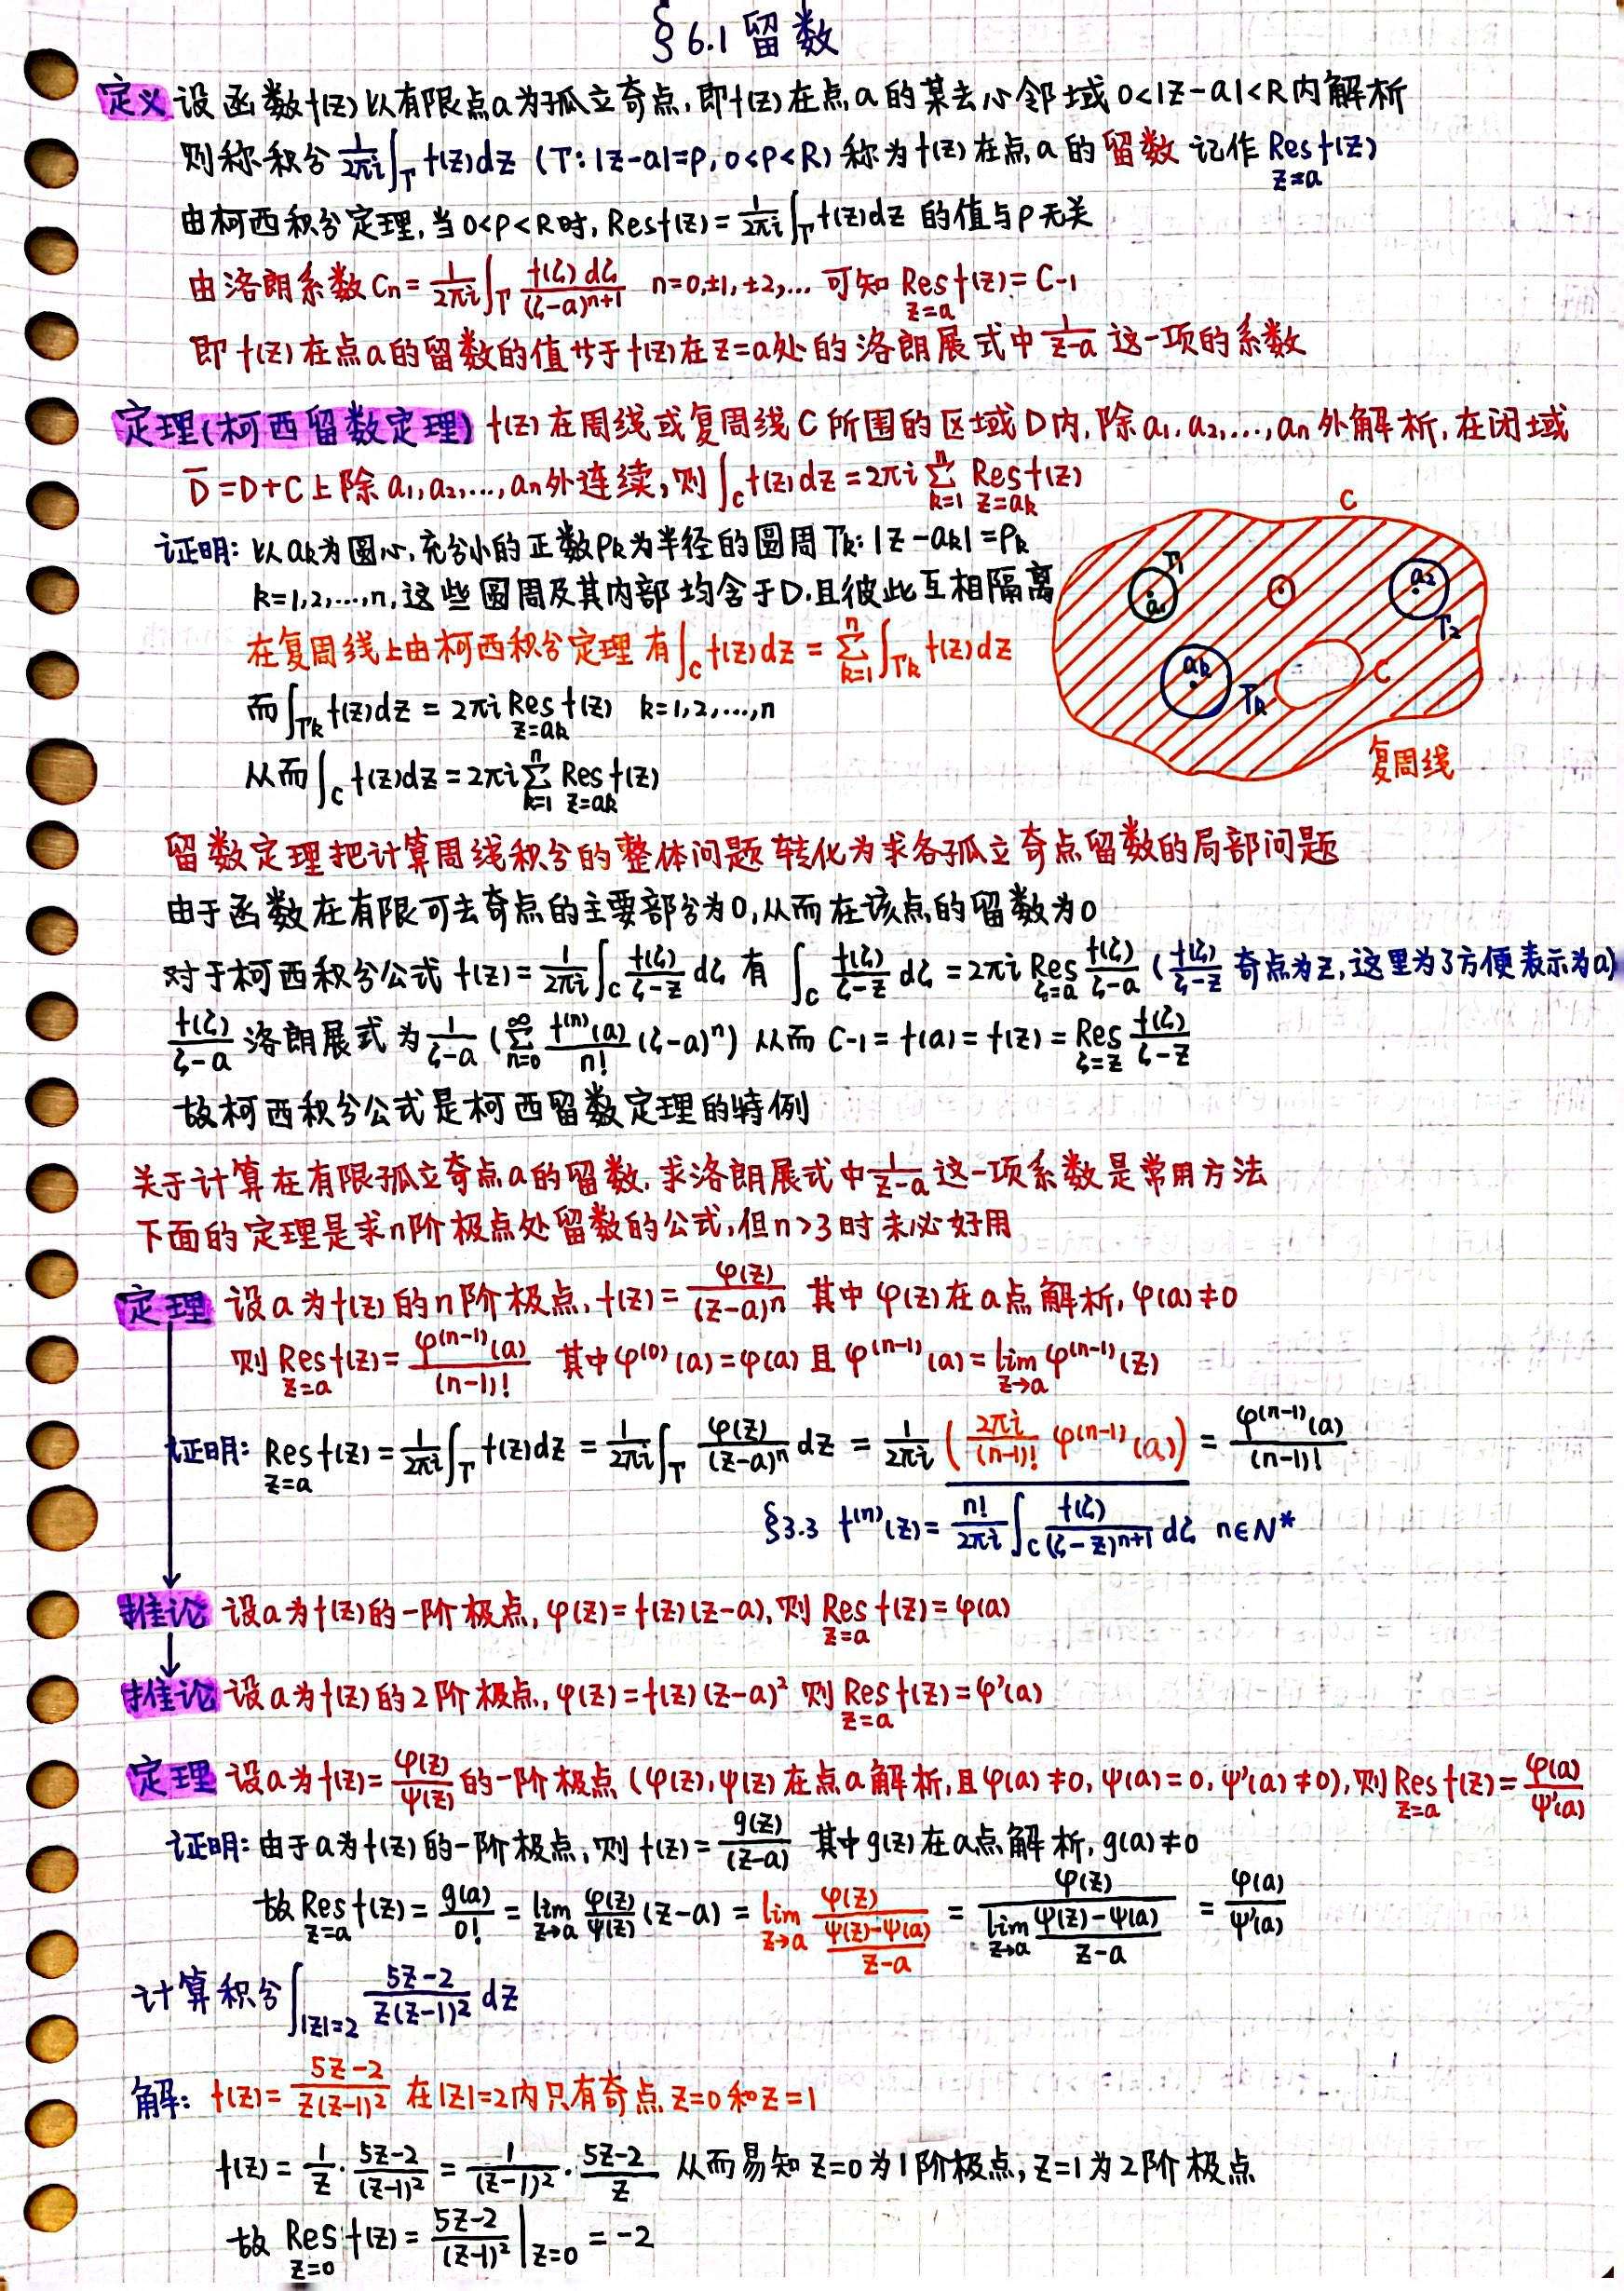 §6.1 留数
定义 设函数f(z)以有限点a为孤立奇点,即f(z)在点a的某去心邻域 0<|z-a|<R内解析
则称积分 1/2πi ∫_Γ f(z)dz (Γ: |z-a|=ρ, 0<ρ<R) 称为f(z)在点a的留数 记作 Res_{z=a} f(z)
由柯西积分定理,当0<ρ<R时, Resf(z)= 1/2πi ∫_Γ f(z)dz 的值与ρ无关
由洛朗系数 Cn= 1/2πi ∫_Γ f(ζ)dζ/(ζ-a)^{n+1} n=0,±1,±2,... 可知 Res_{z=a} f(z)= C-1
即 f(z)在点a的留数的值等于f(z)在z=a处的洛朗展式中 1/(z-a) 这一项的系数
定理(柯西留数定理) f(z)在周线或复周线C所围的区域D内,除a₁,a₂,...,aₙ外解析,在闭域
D̅=D+C上除a₁,a₂,...,aₙ外连续,则∫_C f(z)dz=2πi Σ_{k=1}^{n} Res_{z=ak} f(z)
证明: 以ak为圆心,充分小的正数ρk为半径的圆周Γk: |z-ak|=ρk
k=1,2,...,n,这些圆周及其内部均含于D,且彼此互相隔离
在复周线上由柯西积分定理 有∫_C f(z)dz = Σ_{k=1}^{n} ∫_{Γk} f(z)dz
而∫_{Γk} f(z)dz = 2πi Res_{z=ak} f(z) k=1,2,...,n
从而∫_C f(z)dz=2πi Σ_{k=1}^{n} Res_{z=ak} f(z)
C
Γ₁
a₁
a₂
Γ₂
ak
Γk
C
复周线
留数定理把计算周线积分的整体问题转化为求各孤立奇点留数的局部问题
由于函数在有限可去奇点的主要部分为0,从而在该点的留数为0
对于柯西积分公式 f(z)= 1/2πi ∫_C f(ζ)/(ζ-z) dζ 有 ∫_C f(ζ)/(ζ-z) dζ =2πi Res_{ζ=a} f(ζ)/(ζ-a) (f(ζ)/(ζ-z) 奇点为z,这里为了方便表示为a)
f(ζ)/(ζ-a) 洛朗展式为 1/(ζ-a) (Σ_{n=0}^{∞} f^{(n)}(a)/n! (ζ-a)^n) 从而 C-1=f(a)=f(z)=Res_{ζ=z} f(ζ)/(ζ-z)
故柯西积分公式是柯西留数定理的特例
关于计算在有限孤立奇点a的留数,求洛朗展式中 1/(z-a) 这一项系数是常用方法
下面的定理是求n阶极点处留数的公式,但n>3时未必好用
定理 设a为f(z)的n阶极点, f(z)= φ(z)/(z-a)^n 其中 φ(z)在a点解析, φ(a)≠0
则 Res_{z=a} f(z)= φ^{(n-1)}(a)/(n-1)! 其中φ^{(0)}(a)=φ(a) 且 φ^{(n-1)}(a)=lim_{z→a} φ^{(n-1)}(z)
证明: Res_{z=a} f(z)= 1/2πi ∫_Γ f(z)dz = 1/2πi ∫_Γ φ(z)/(z-a)^n dz = 1/2πi (2πi/(n-1)! φ^{(n-1)}(a)) = φ^{(n-1)}(a)/(n-1)!
§3.3 f^{(n)}(z)= n!/2πi ∫_C f(ζ)/(ζ-z)^{n+1} dζ n∈N*
推论 设a为f(z)的一阶极点, φ(z)=f(z)(z-a),则 Res_{z=a} f(z)=φ(a)
推论 设a为f(z)的2阶极点, φ(z)=f(z)(z-a)² 则 Res_{z=a} f(z)=φ'(a)
定理 设a为f(z)= φ(z)/ψ(z) 的一阶极点 (φ(z),ψ(z)在点a解析,且φ(a)≠0, ψ(a)=0, ψ'(a)≠0),则 Res_{z=a} f(z)= φ(a)/ψ'(a)
证明: 由于a为f(z)的一阶极点,则 f(z)= g(z)/(z-a) 其中g(z)在a点解析, g(a)≠0
故 Res_{z=a} f(z)= g(a)/0! = lim_{z→a} φ(z)/ψ(z) (z-a) = lim_{z→a} φ(z)/((ψ(z)-ψ(a))/(z-a)) = φ(z)/(lim_{z→a} (ψ(z)-ψ(a))/(z-a)) = φ(a)/ψ'(a)
计算积分∫_{|z|=2} (5z-2)/(z(z-1)²) dz
解: f(z)= (5z-2)/(z(z-1)²) 在|z|=2内只有奇点 z=0和z=1
f(z)= 1/z · (5z-2)/(z-1)² = 1/(z-1)² · (5z-2)/z 从而易知 z=0为1阶极点, z=1为2阶极点
故 Res_{z=0} f(z)= (5z-2)/(z-1)² |_{z=0} = -2